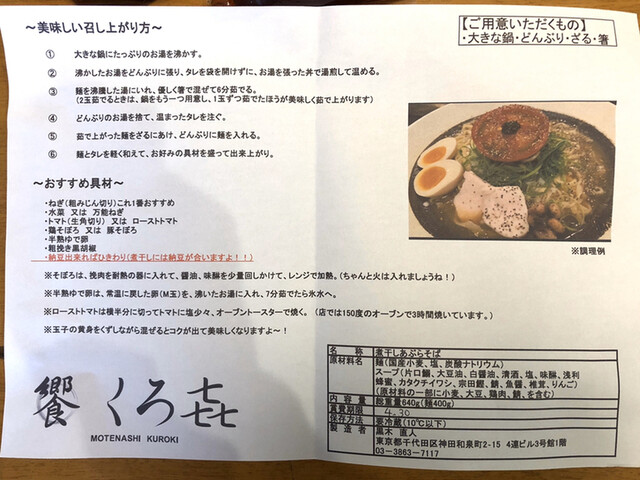 ～美味しい召し上がり方～
【ご用意いただくもの】
・大きな鍋・どんぶり・ざる・箸
① 大きな鍋にたっぷりのお湯を沸かす。
② 沸かしたお湯をどんぶりに張り、タレを袋を開けずに、お湯を張った丼で湯煎して温める。
③ 麺を沸騰した湯にいれ、優しく箸で混ぜて6分茹でる。
(2玉茹でるときは、鍋をもう一つ用意し、1玉ずつ茹でたほうが美味しく茹で上がります)
④ どんぶりのお湯を捨て、温まったタレを注ぐ。
⑤ 茹で上がった麺をざるにあけ、どんぶりに麺を入れる。
⑥ 麺とタレを軽く和えて、お好みの具材を盛って出来上がり。
～おすすめ具材～
・ねぎ(粗みじん切り)これ1番おすすめ
・水菜 又は 万能ねぎ
・トマト(生角切り) 又は ローストトマト
・鶏そぼろ 又は 豚そぼろ
・半熟ゆで卵
・粗挽き黒胡椒
・納豆出来ればひきわり(煮干しには納豆が合いますよ！！)
※調理例
※そぼろは、挽肉を耐熱の器に入れて、醤油、味醂を少量回しかけて、レンジで加熱。(ちゃんと火は入れましょうね！)
※半熟ゆで卵は、常温に戻した卵(M玉)を、沸いたお湯に入れ、7分茹でたら氷水へ。
※ローストトマトは横半分に切ってトマトに塩少々、オーブントースターで焼く。(店では150度のオーブンで3時間焼いています。)
※玉子の黄身をくずしながら混ぜるとコクが出て美味しくなりますよ～！
饗 くろ㐂
MOTENASHI KUROKI
名 称 煮干しあぶらそば
原材料名 麺(国産小麦、塩、炭酸ナトリウム)
スープ(片口鰯、大豆油、白醤油、清酒、塩、味醂、浅利
蜂蜜、カタクチイワシ、宗田鰹、鯖、魚醤、椎茸、りんご)
(原材料の一部に小麦、大豆、鶏肉、鯖、を含む)
内 容 量 総重量640g(麺400g)
賞味期限 4.30
保存方法 要冷蔵(10℃以下)
製 造 者 黒木 直人
東京都千代田区神田和泉町2-15 4連ビル3号館1階
03-3863-7117